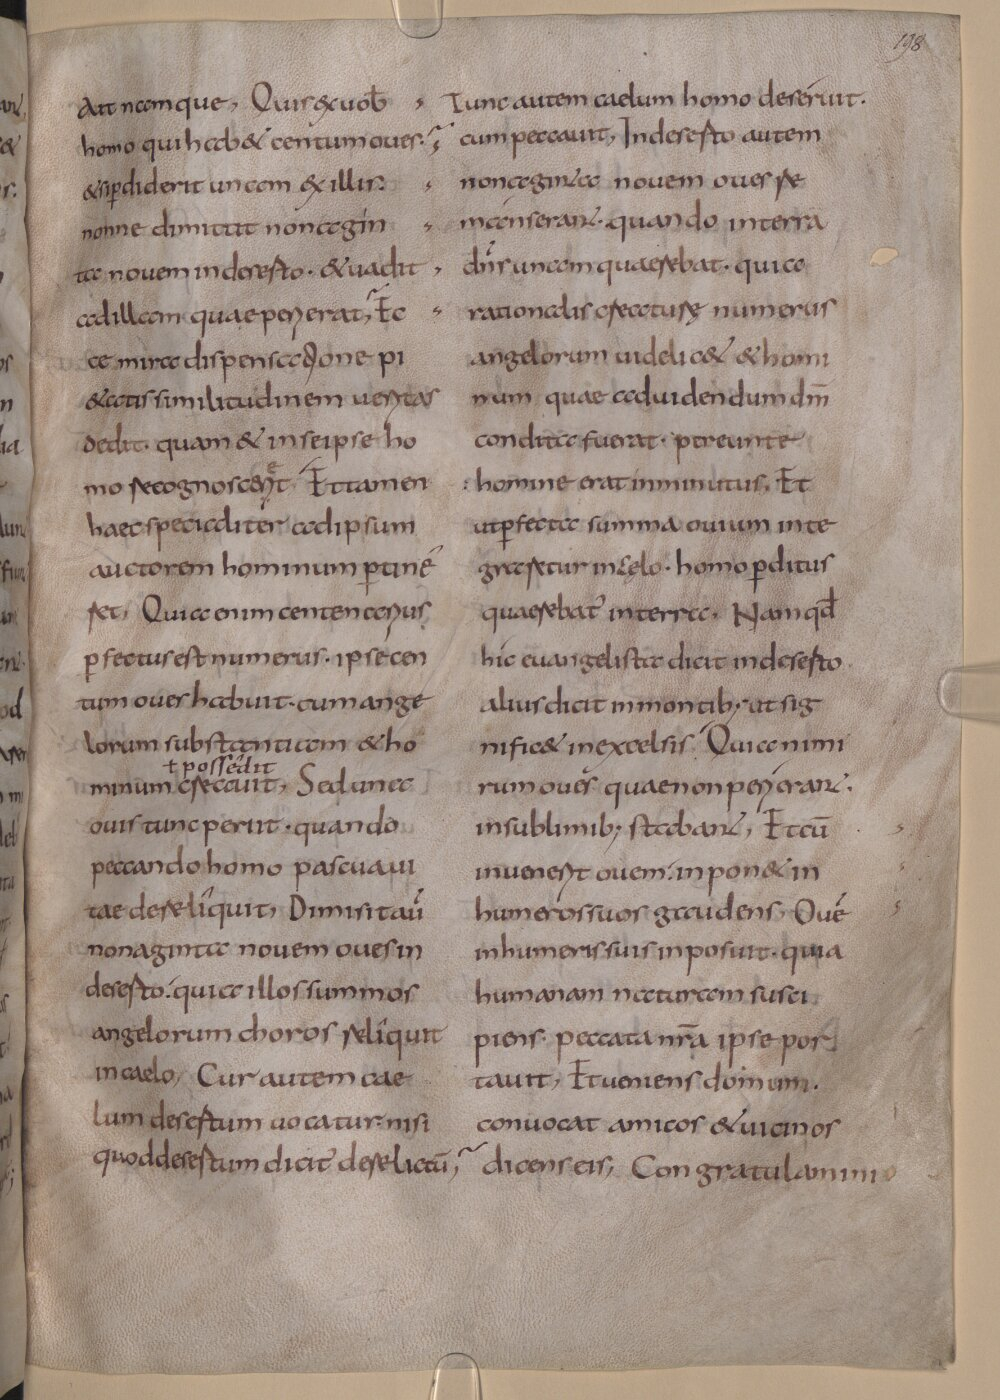 198
Ait namque, Quis ex uob̅
homo qui habet centum oues.
& si ꝑdiderit unam ex illis.
nonne dimittit nonagin
ta nouem in deserto. & uadit
ad illam quae perierat, Ec
ce mira dispensatione pi
etatis similitudinem ueritas
dedit. quam & in se ipse ho
mo recognoscerit. Et tamen
haec specialiter ad ipsum
auctorem hominum ꝑtine
ret, Quia enim centenarius
ꝑfectus est numerus. ipse cen
tum oues habuit. cum ange
lorum substantiam & ho
ł possedit
minum creauit, Sed una
ouis tunc periit. quando
peccando homo pascua ui
tae dereliquit, Dimisit au̅
nonaginta nouem oues in
deserto. quia illos summos
angelorum choros reliquit
in caelo, Cur autem cae
lum desertum uocatur. nisi
quod desertum dicit̾ derelictu̅,
Tunc autem caelum homo deseruit.
cum peccauit, In deserto autem
nonaginta nouem oues re
manserant. quando in terra
dn̅s unam quaerebat. quia
rationalis creaturę numerus
angelorum uidelicet & homi
num quae ad uidendum dm̅
condita fuerat. pereunte
homine erat inminutus. Et
ut ꝑfecta summa ouium inte
graretur in celo. homo ꝑditus
quaerebat̾ in terra, Nam qd̅
hic euangelista dicit in deserto
alius dicit in montib; ut sig
nificet in excelsis. Quia nimi
rum oues quae non perierant.
in sublimib; stabant, Et cu̅
inuenerit ouem. inponet in
humeros suos gaudens, Oue̅
in humeris suis inposuit. quia
humanam naturam susci
piens. peccata nr̅a ipse por
tauit, Et ueniens domum.
conuocat amicos & uicinos
dicens eis, Congratulamini